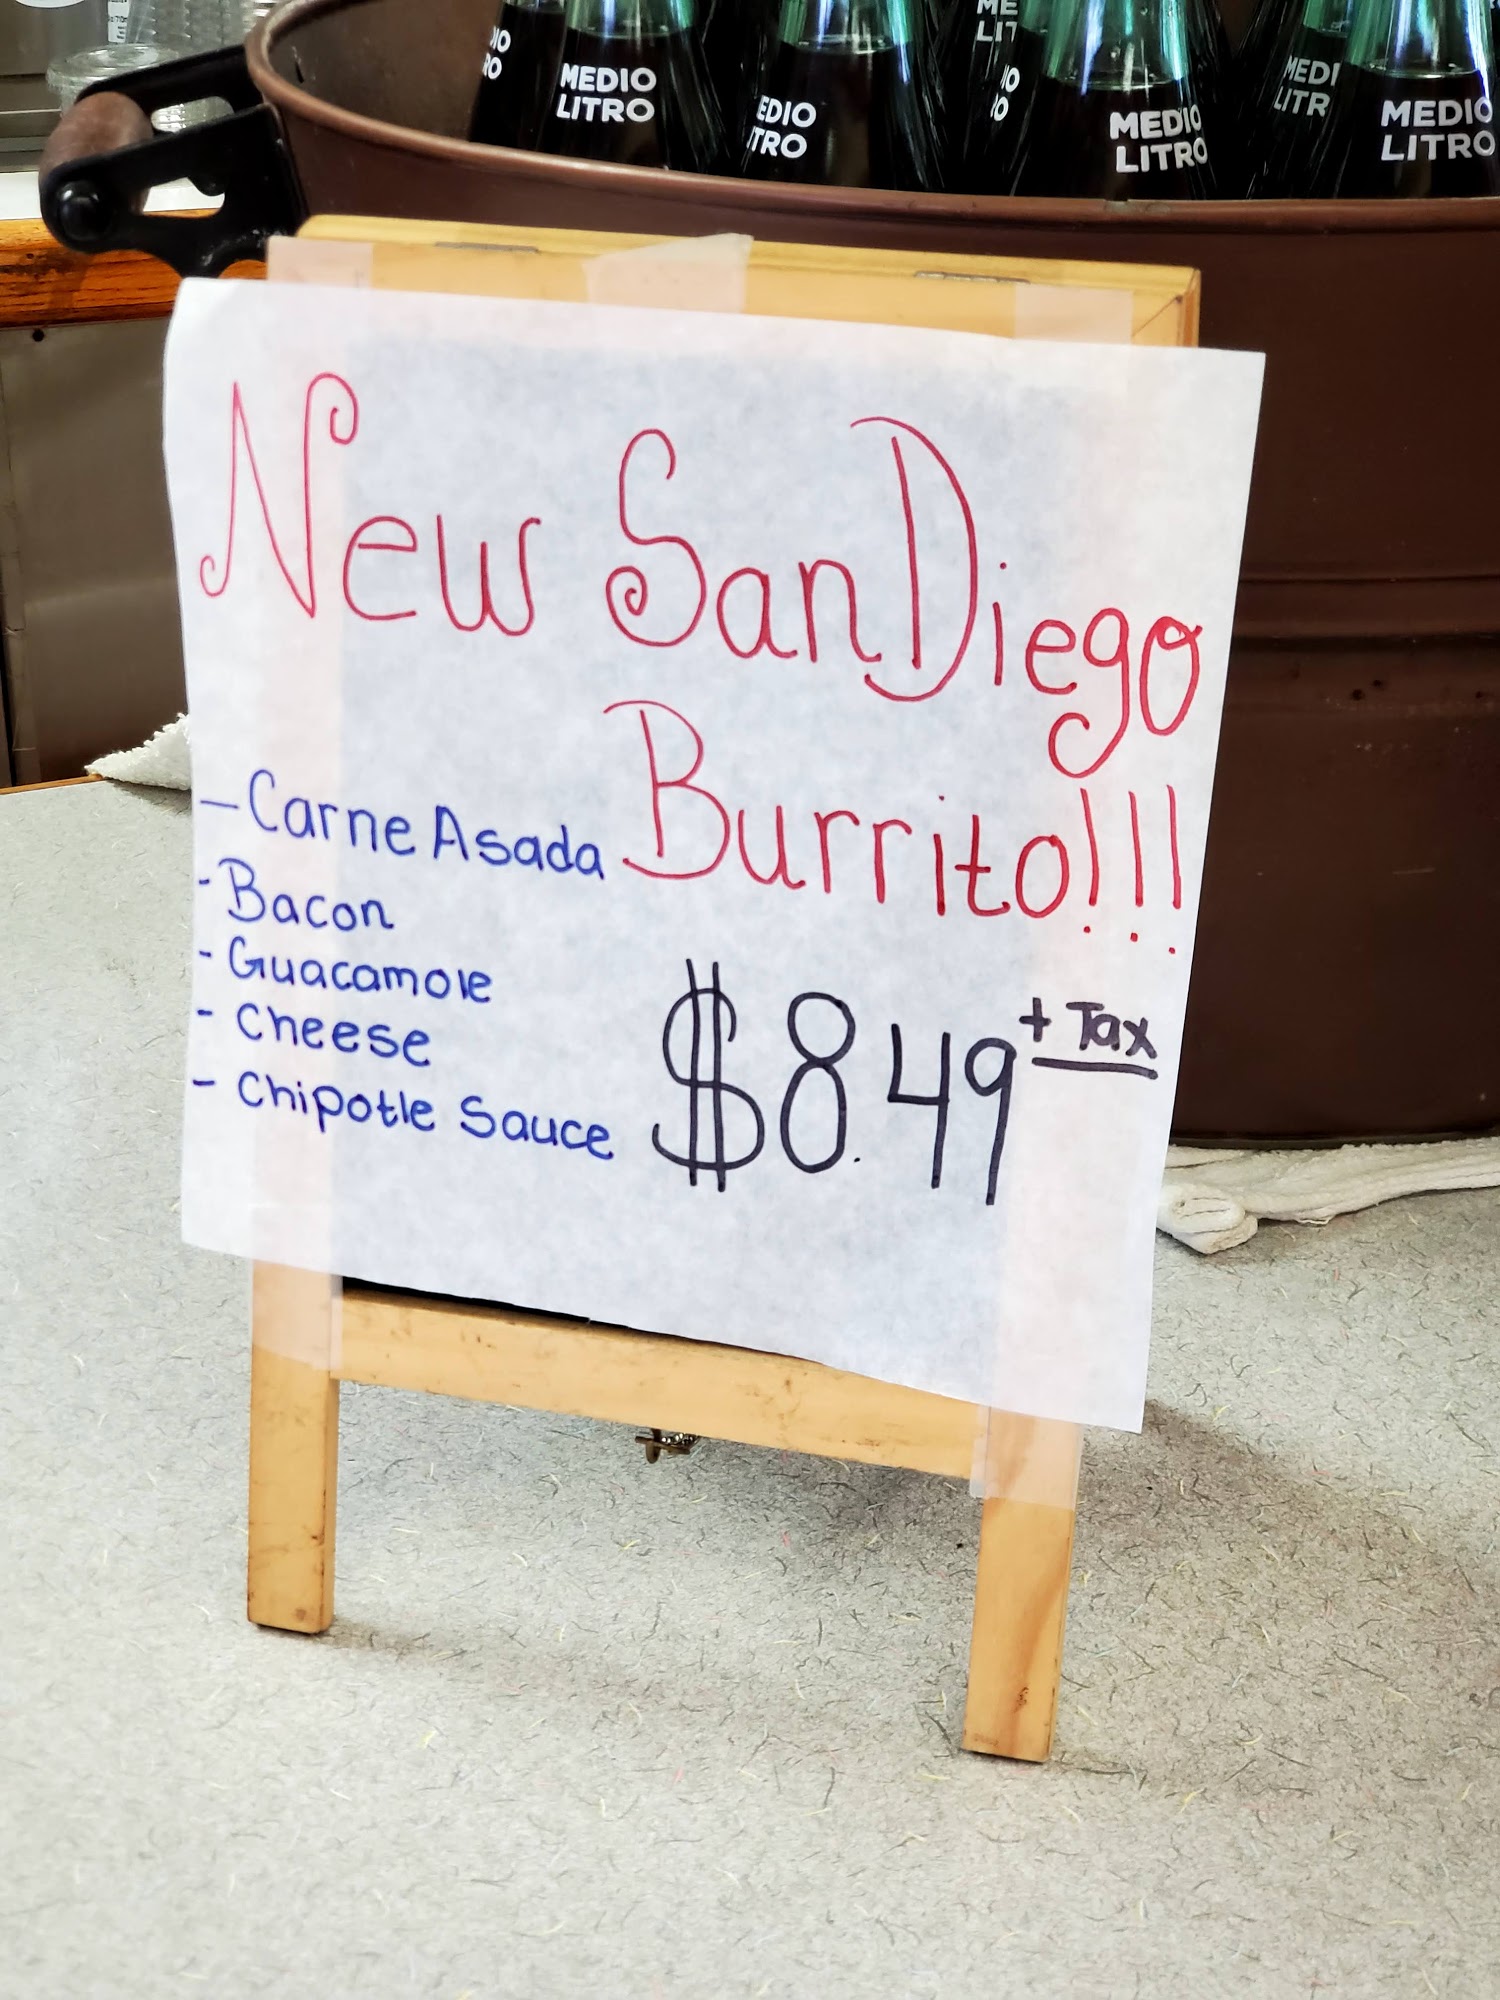 MEDIO
LITRO
EDIO
ITRO
MEDIO
LITRO
MEDI
LITR
MEDIO
LITRO
New San Diego
Burrito!!!
- Carne Asada
- Bacon
- Guacamole
- Cheese
- Chipotle Sauce
$8.49 + Tax